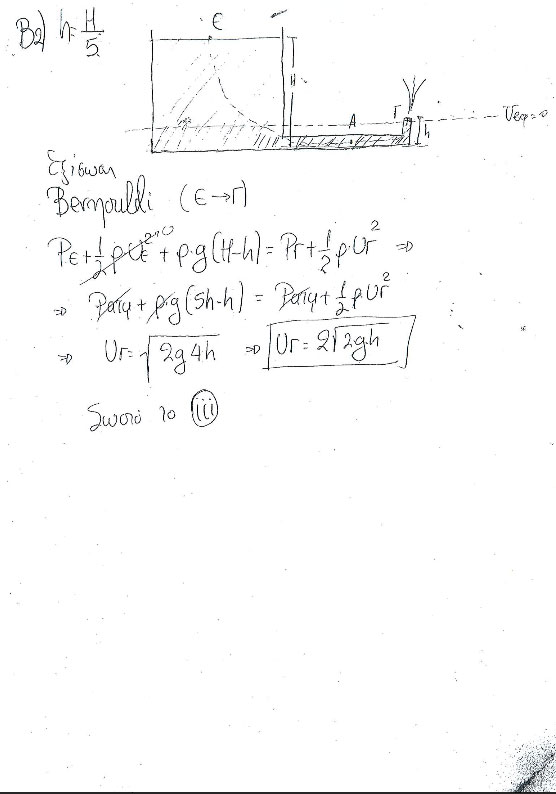 B2) h = H/5
Ε
H
Α
Γ
h
Εξίσωση
Bernoulli (Ε→Γ)
P_Ε + 1/2 ρ υ_Ε² + ρ·g(H-h) = P_Γ + 1/2 ρ·υ_Γ² ⇒
⇒ P_ατμ + ρ·g(5h-h) = P_ατμ + 1/2 ρ υ_Γ²
⇒ υ_Γ = √2g4h ⇒ υ_Γ = 2√2gh
Σωστό το (iii)